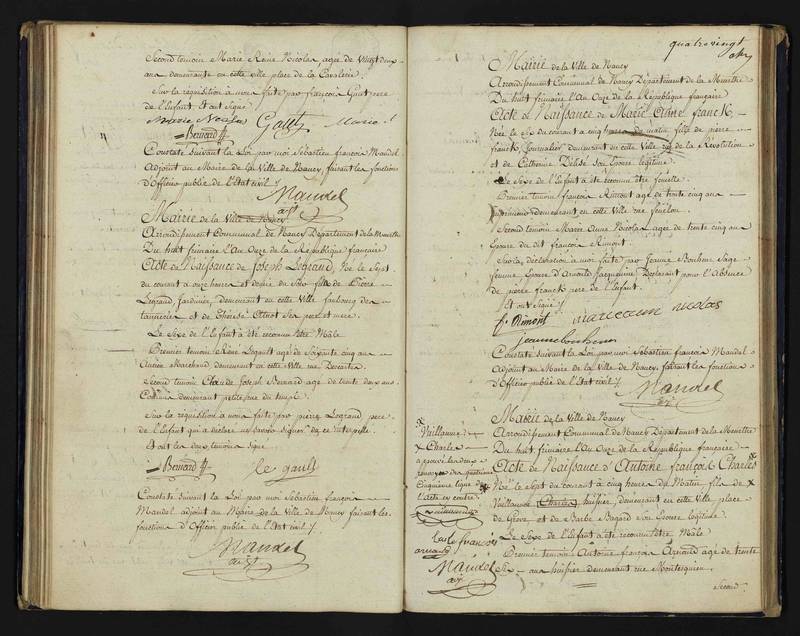 Second temoin Marie Reine Nicolas, agée de Vingt deux
ans demeurante en cette ville place de la Cavalerie.
Sur la réquisition à nous faite par françois pere
de l'Enfant. Et ont signé
Marie Nicolas
Bernard
Constaté suivant la Loi par moi Sébastien françois Mandel
Adjoint au Maire de la Ville de Nancy, faisant les fonctions
d'Officier public de l'Etat civil./.
Mandel
adjt
Mairie de la Ville de Nancy
Arrondissement Communal de Nancy Département de la Meurthe
Du huit frimaire l'An Onze de la République française
Acte de Naissance de Joseph Legrand, Né le Sept
du courant à onze heures et demie du Soir fils de Pierre
Legrand Jardinier, demeurant en cette Ville faubourg des
tanneries et de Thérèse son pere et mere
Le Sexe de l'Enfant a été reconnu être Mâle
Premier temoin Réné Legault agé de Soixante cinq ans
Ancien Marchand, demeurant en cette ville rue Descartes
Second temoin Claude Joseph Bernard agé de trente deux ans
demeurant petite rue du temple.
Sur la réquisition à nous faite par pierre Legrand pere
de l'Enfant qui a déclaré ne savoir signer de ce interpellé.
Et ont les deux temoins signé.
Bernard le gault
Constaté suivant la Loi par moi Sébastien françois
Mandel adjoint au Maire de la Ville de Nancy faisant les
fonctions d'Officier public de l'Etat civil./.
Mandel
adjt
quatrevingt
Mairie de la Ville de Nancy
Arrondissement Communal de Nancy Département de la Meurthe
Du huit frimaire l'An Onze de la République française
Acte de Naissance de Marie Anne franck,
Née le Six du courant à cinq heures du matin fille de pierre
franck, Journalier demeurant en cette ville rue de la Révolution
et de Catherine Son Epouse légitime.
Le Sexe de l'Enfant a été reconnu être femelle
Premier temoin françois Rimont agé de trente cinq ans
demeurant en cette Ville rue fénélon.
Second temoin Marie Anne Nicolas agée de trente cinq ans
Epouse du dit françois Rimont.
Sur la déclaration à nous faite par Jeanne Bonhem Sage
femme Epouse d'Arnould Jacquemin Déclarant pour l'Absence
de pierre franck pere de l'Enfant.
Et ont signé./.
f. Rimont marieanne nicolas
jeanne bonhem
Constaté suivant la Loi par moi Sébastien françois Mandel
Adjoint au Maire de la Ville de Nancy, faisant les fonctions
d'Officier public de l'Etat civil./.
Mandel
adjt
Mairie de la Ville de Nancy
Arrondissement Communal de Nancy Département de la Meurthe
Du huit frimaire l'An Onze de la République française
Acte de Naissance d'Antoine françois Charles
Né le Sept du courant à cinq heures du Matin fils de
Vuillaume Charles, huissier, demeurant en cette Ville place
de Grève, et de Barbe Bagard Son Epouse légitime.
Le Sexe de l'Enfant a été reconnu être Mâle
Premier temoin Antoine françois Arnould agé de trente
Six ans huissier demeurant rue Montesquieu.
Second
Vuillaume
Charles
approuvé les deux
renvoys
Cinquième ligne de
l'acte en contre
arnould
Mandel
adjt